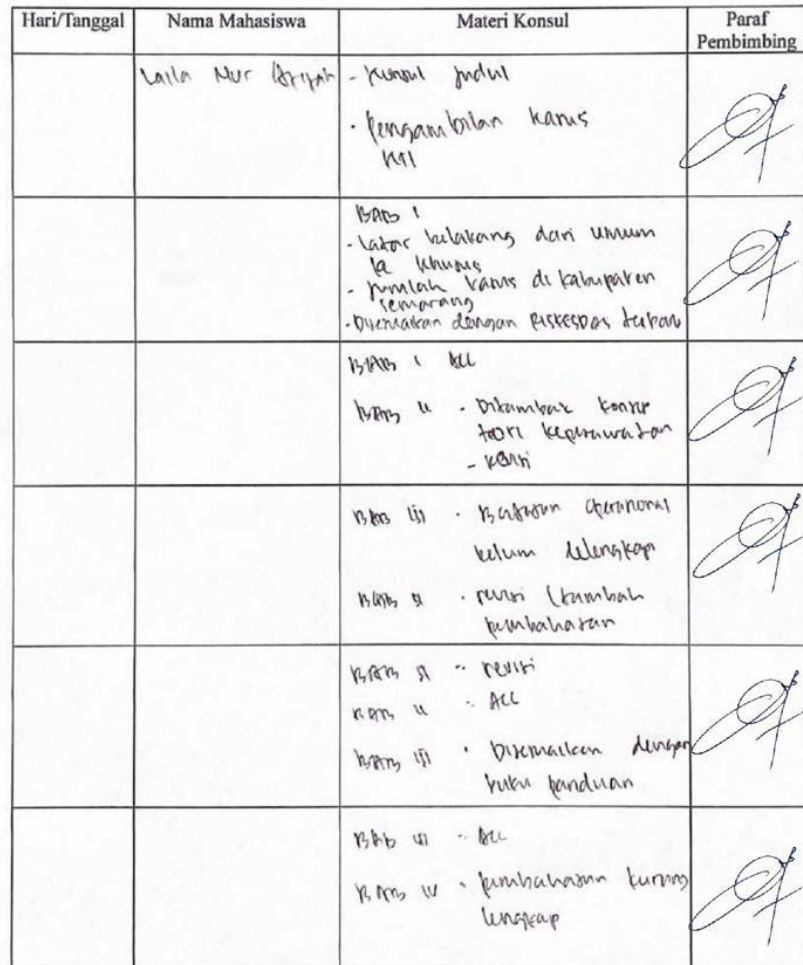 Hari/Tanggal Nama Mahasiswa Materi Konsul Paraf
Pembimbing
Laila Nur - Konsul Judul
- Pengambilan kasus
KTI
BAB I
- Latar belakang dari umum
ke khusus
- Jumlah kasus di kabupaten
semarang
- Disesuaikan dengan RISKESDAS
BAB I ACC
BAB II - Ditambax konsep
teori keperawatan
BAB III - Batasan Operasional
belum dilengkapi
BAB II - revisi (tambah
pembahasan
BAB II - revisi
BAB II - ACC
BAB III - Disesuaikan dengan
buku panduan
BAB III - ACC
BAB IV - pembahasan kurang
lengkap